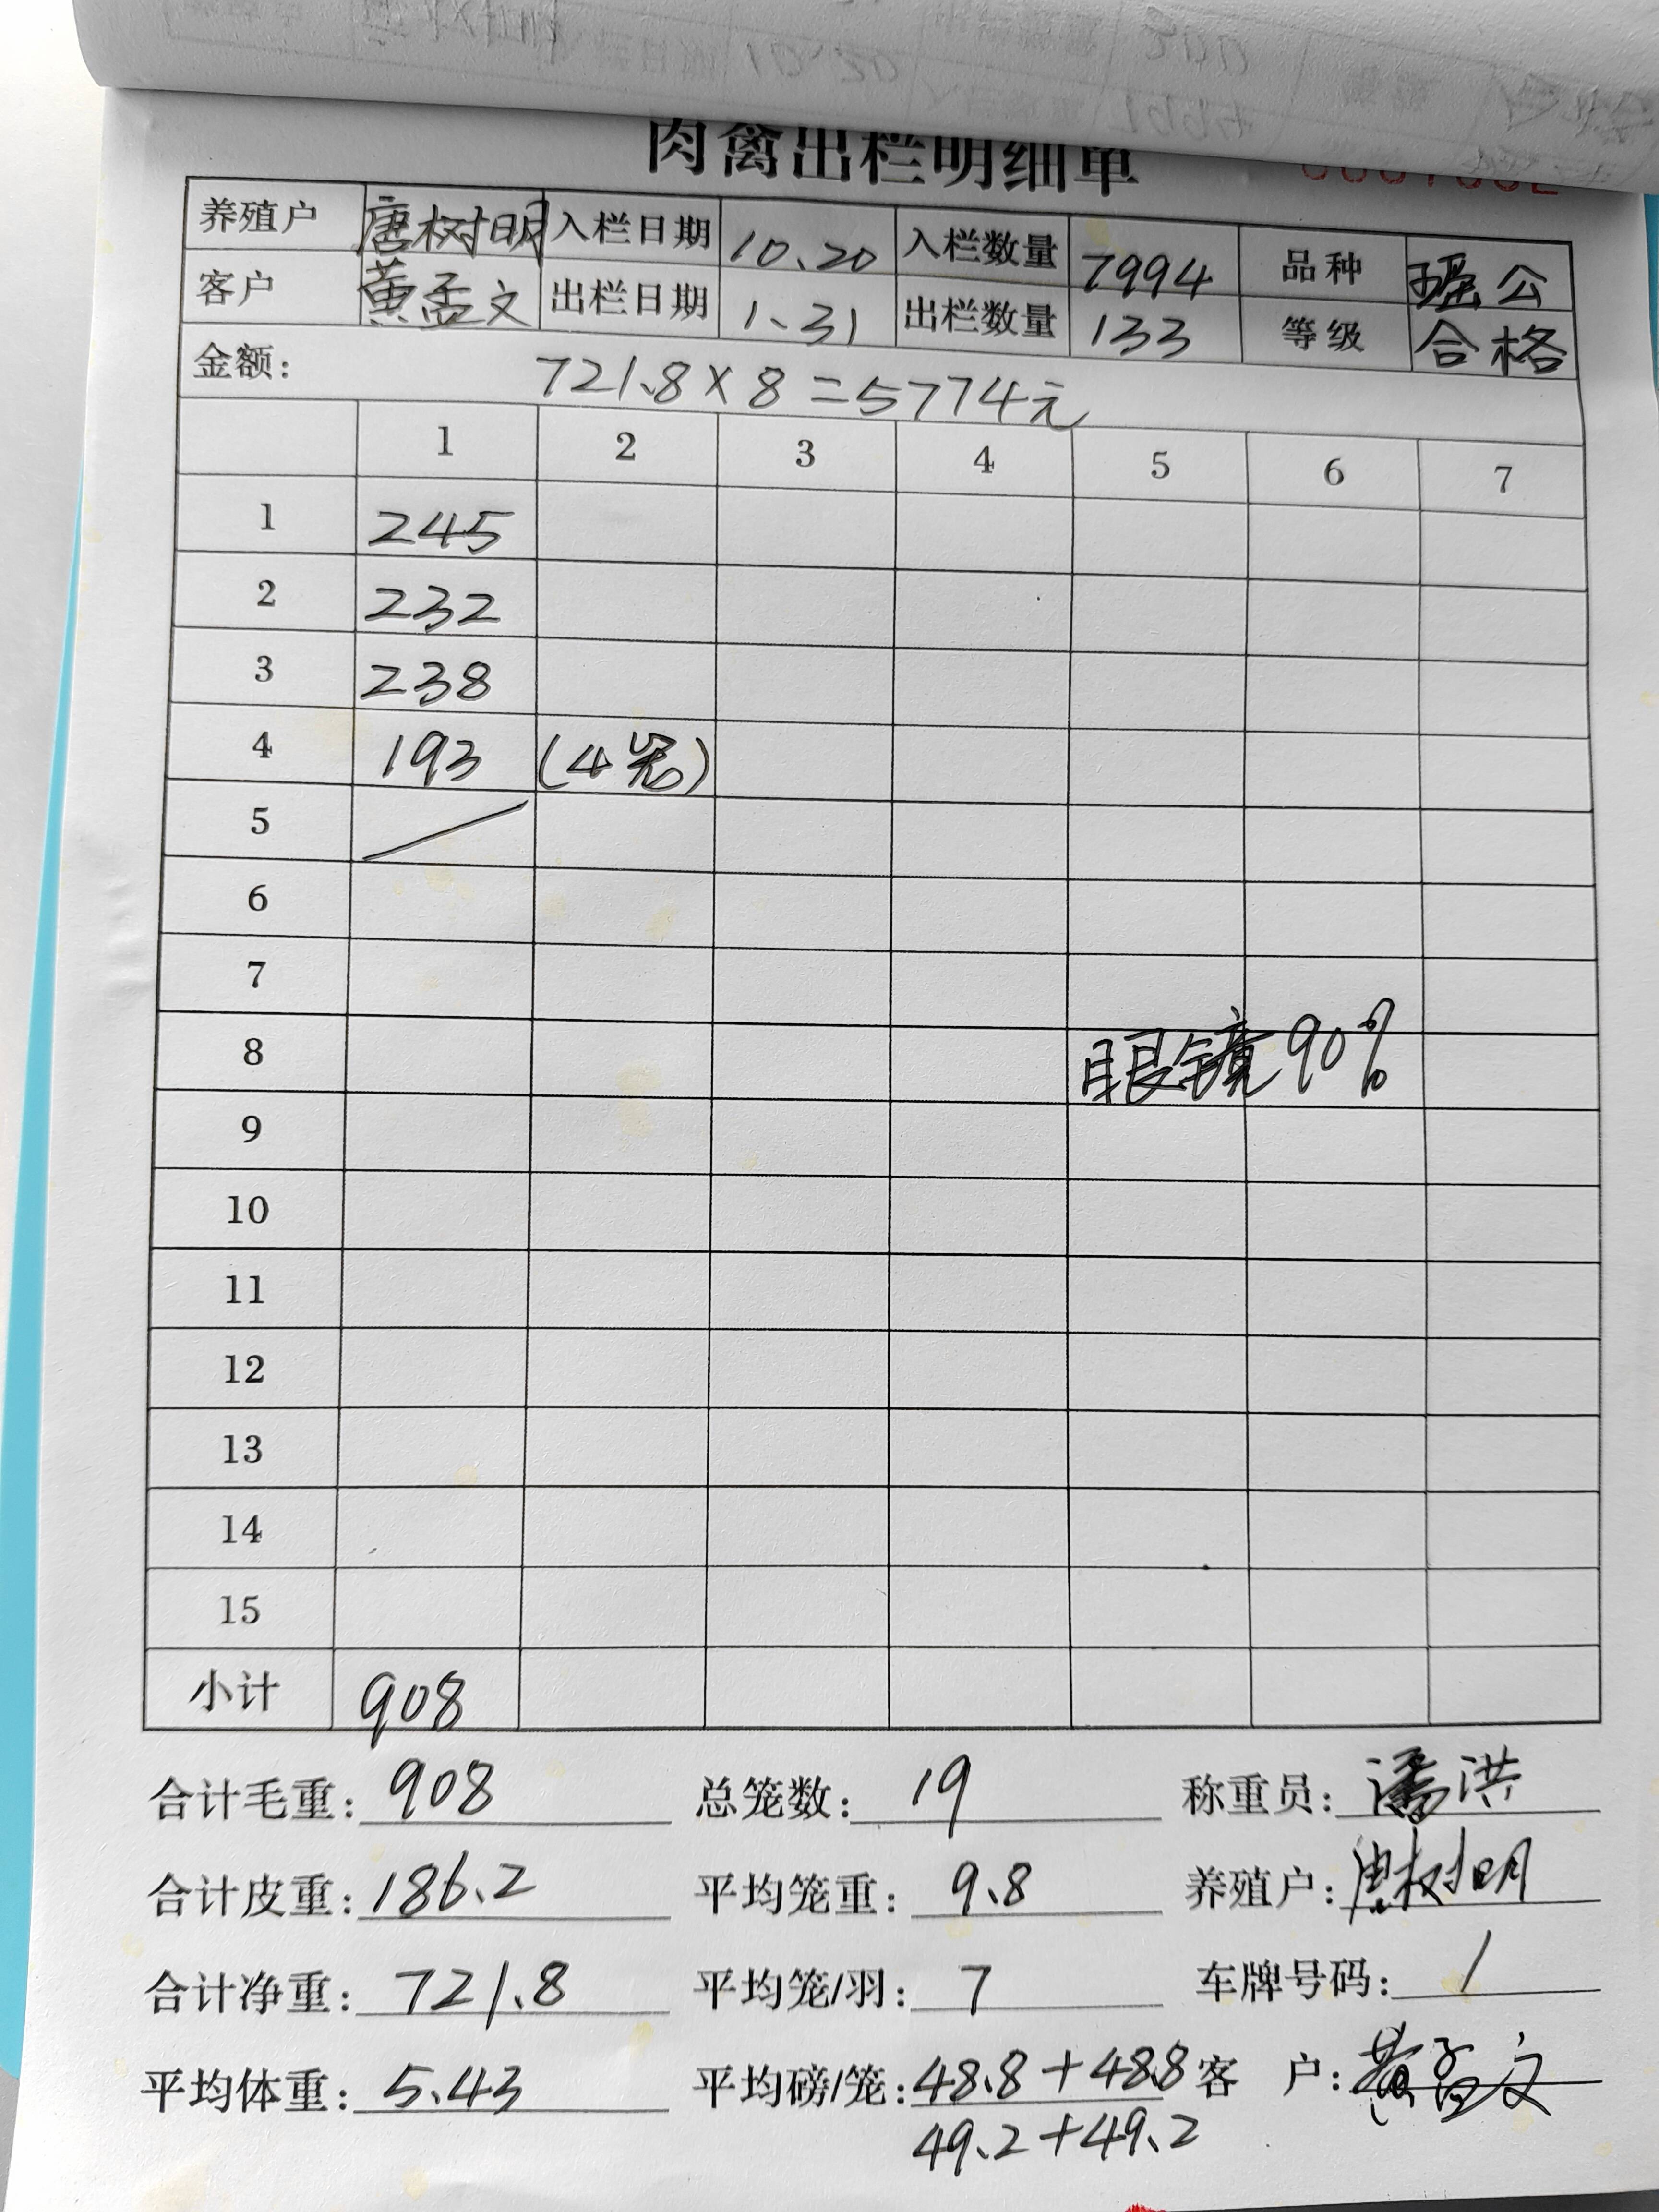 肉禽出栏明细单
养殖户 唐树明 入栏日期 10、20 入栏数量 7994 品种 瑶公
客户 黄孟文 出栏日期 1、31 出栏数量 133 等级 合格
金额： 721.8×8=5774元
1 2 3 4 5 6 7
1 245
2 232
3 238
4 193 (4笼)
5
6
7
8 眼镜90%
9
10
11
12
13
14
15
小计 908
合计毛重：908 总笼数：19 称重员：潘洪
合计皮重：186.2 平均笼重：9.8 养殖户：唐树明
合计净重：721.8 平均笼/羽：7 车牌号码：/
平均体重：5.43 平均磅/笼：48.8+48.8 客户：黄孟文
49.2+49.2